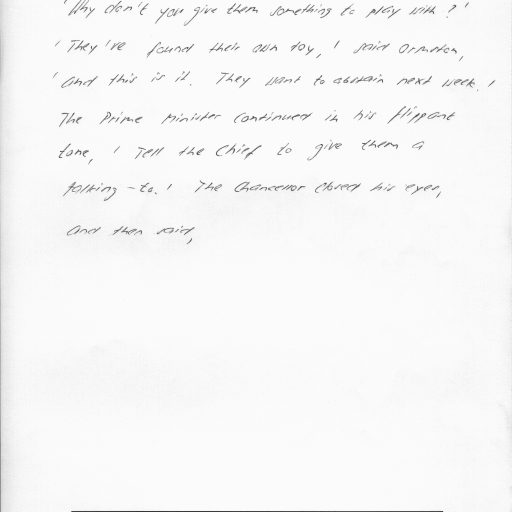 'Why don't you give them something to play with?'
'They've found their own toy,' said Ormeton,
'and this is it. They want to abstain next week.'
The Prime Minister continued in his flippant
tone, 'Tell the Chief to give them a
talking-to.' The Chancellor closed his eyes,
and then said,